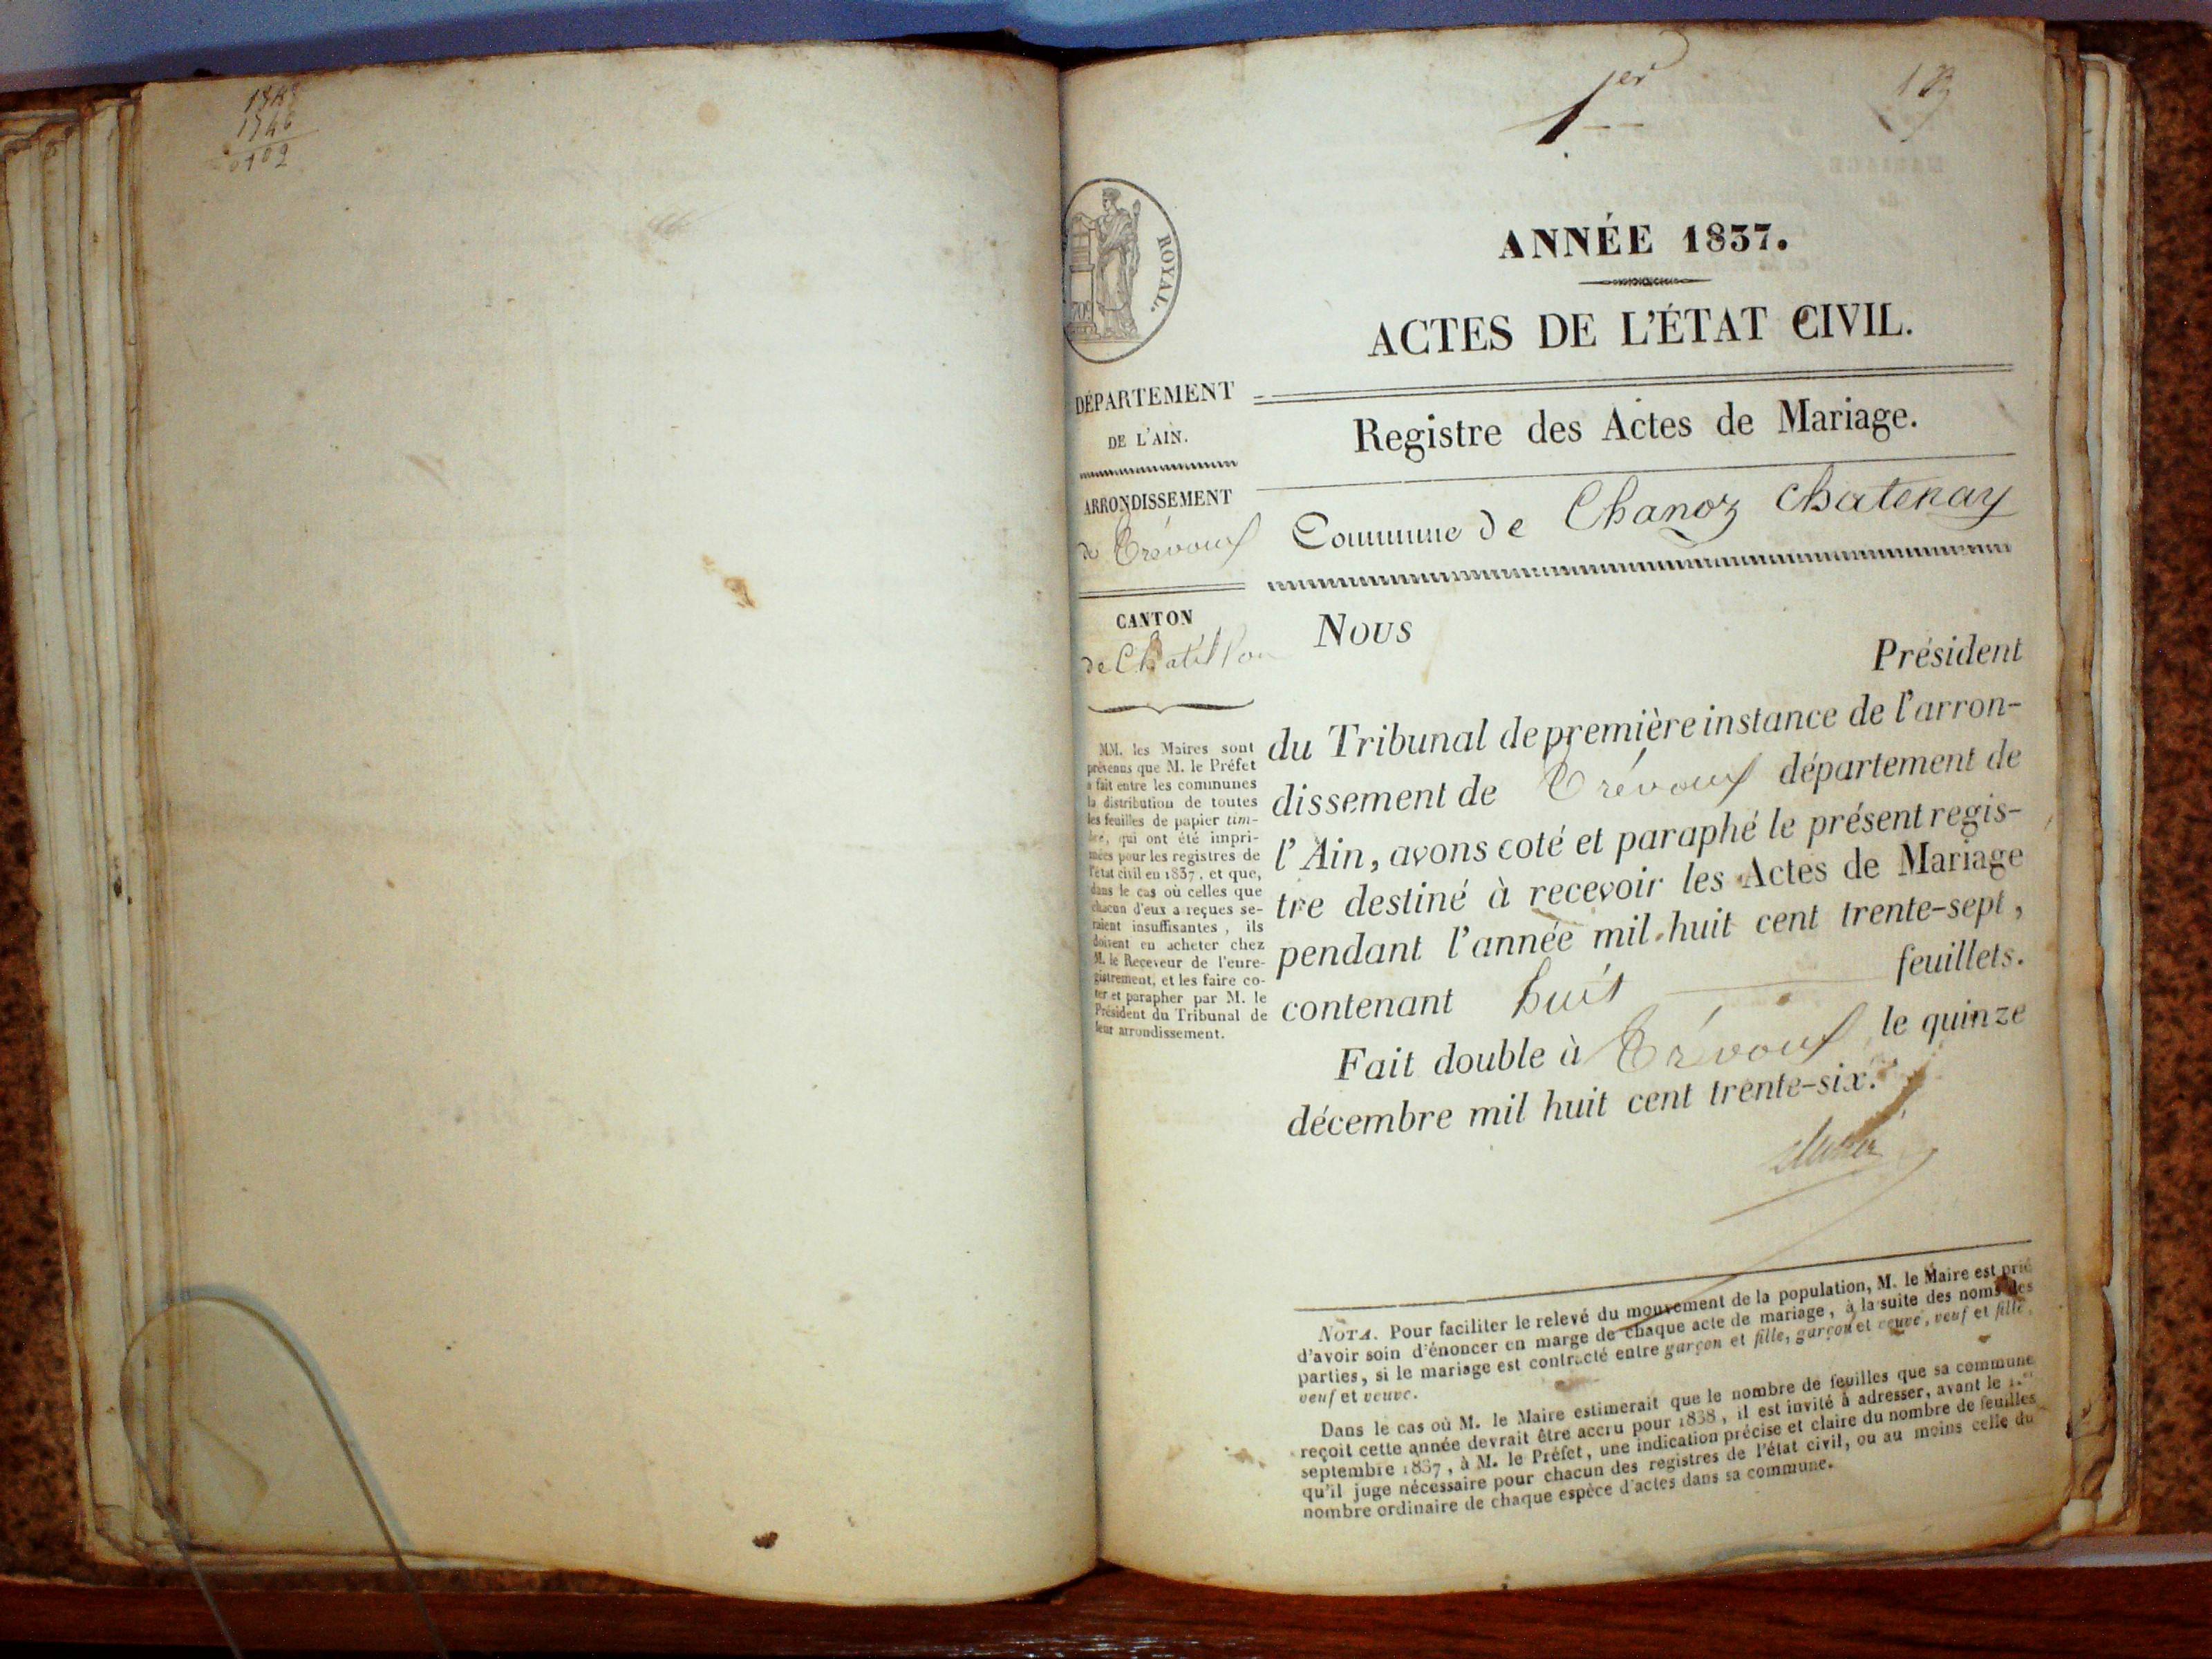 1er
ANNÉE 1837.
ACTES DE L'ÉTAT CIVIL.
Registre des Actes de Mariage.
Commune de Chanoz Chatenay
ROYAL.
DÉPARTEMENT
DE L'AIN.
ARRONDISSEMENT
de Trévoux
CANTON
de Chatillon
MM. les Maires sont
prévenus que M. le Préfet
a fait entre les communes
la distribution de toutes
les feuilles de papier tim-
bré, qui ont été impri-
mées pour les registres de
l'état civil en 1837, et que,
dans le cas où celles que
chacun d'eux a reçues se-
raient insuffisantes, ils
doivent en acheter chez
M. le Receveur de l'enre-
gistrement, et les faire co-
ter et parapher par M. le
Président du Tribunal de
leur arrondissement.
Nous
Président
du Tribunal de première instance de l'arron-
dissement de Trévoux département de
l'Ain, avons coté et paraphé le présent regis-
tre destiné à recevoir les Actes de Mariage
pendant l'année mil huit cent trente-sept,
contenant huit feuillets.
Fait double à Trévoux le quinze
décembre mil huit cent trente-six.
NOTA. Pour faciliter le relevé du mouvement de la population, M. le Maire est prié
d'avoir soin d'énoncer en marge de chaque acte de mariage, à la suite des noms des
parties, si le mariage est contracté entre garçon et fille, garçon et veuve, veuf et fille,
veuf et veuve.
Dans le cas où M. le Maire estimerait que le nombre de feuilles que sa commune
reçoit cette année devrait être accru pour 1838, il est invité à adresser, avant le 1.er
septembre 1837, à M. le Préfet, une indication précise et claire du nombre de feuilles
qu'il juge nécessaire pour chacun des registres de l'état civil, ou au moins celle du
nombre ordinaire de chaque espèce d'actes dans sa commune.